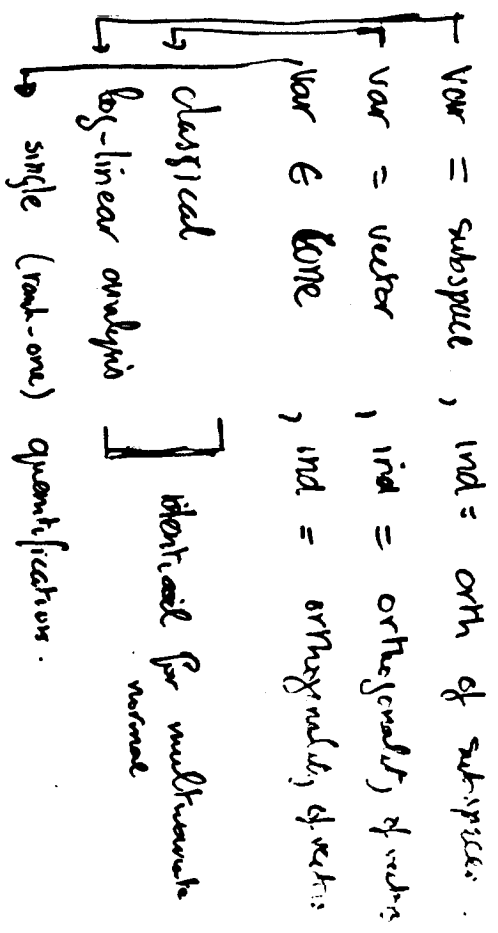 Var = subspace, ind = orth of subspaces.
var = vector, ind = orthogonality of vectors
var ∈ Cone, ind = orthogonality of vectors
classical
log-linear analysis
identical for multivariate
normal
single (rank-one) quantifications.